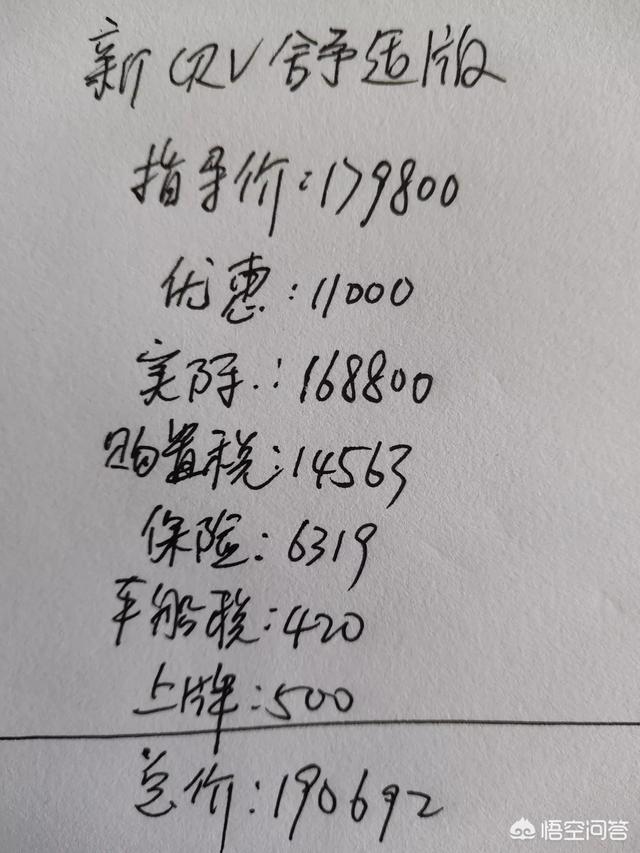 新CRV舒适版
指导价:179800
优惠:11000
实际:168800
购置税:14563
保险:6319
车船税:420
上牌:500
总价:190692
悟空问答